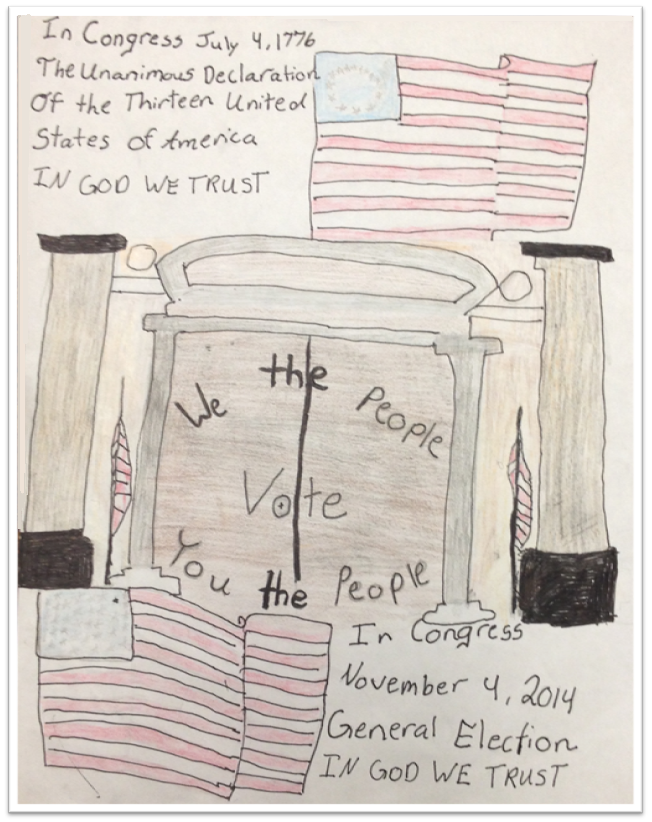 In Congress July 4, 1776
The Unanimous Declaration
Of the Thirteen United
States of America
IN GOD WE TRUST
We the People
Vote
You the People
In Congress
November 4, 2014
General Election
IN GOD WE TRUST